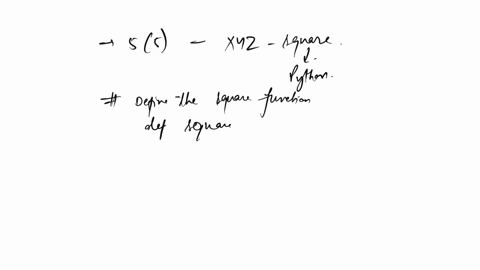 → 5(5) - XYZ - square.
↓
Python.
# Define the square function
def square